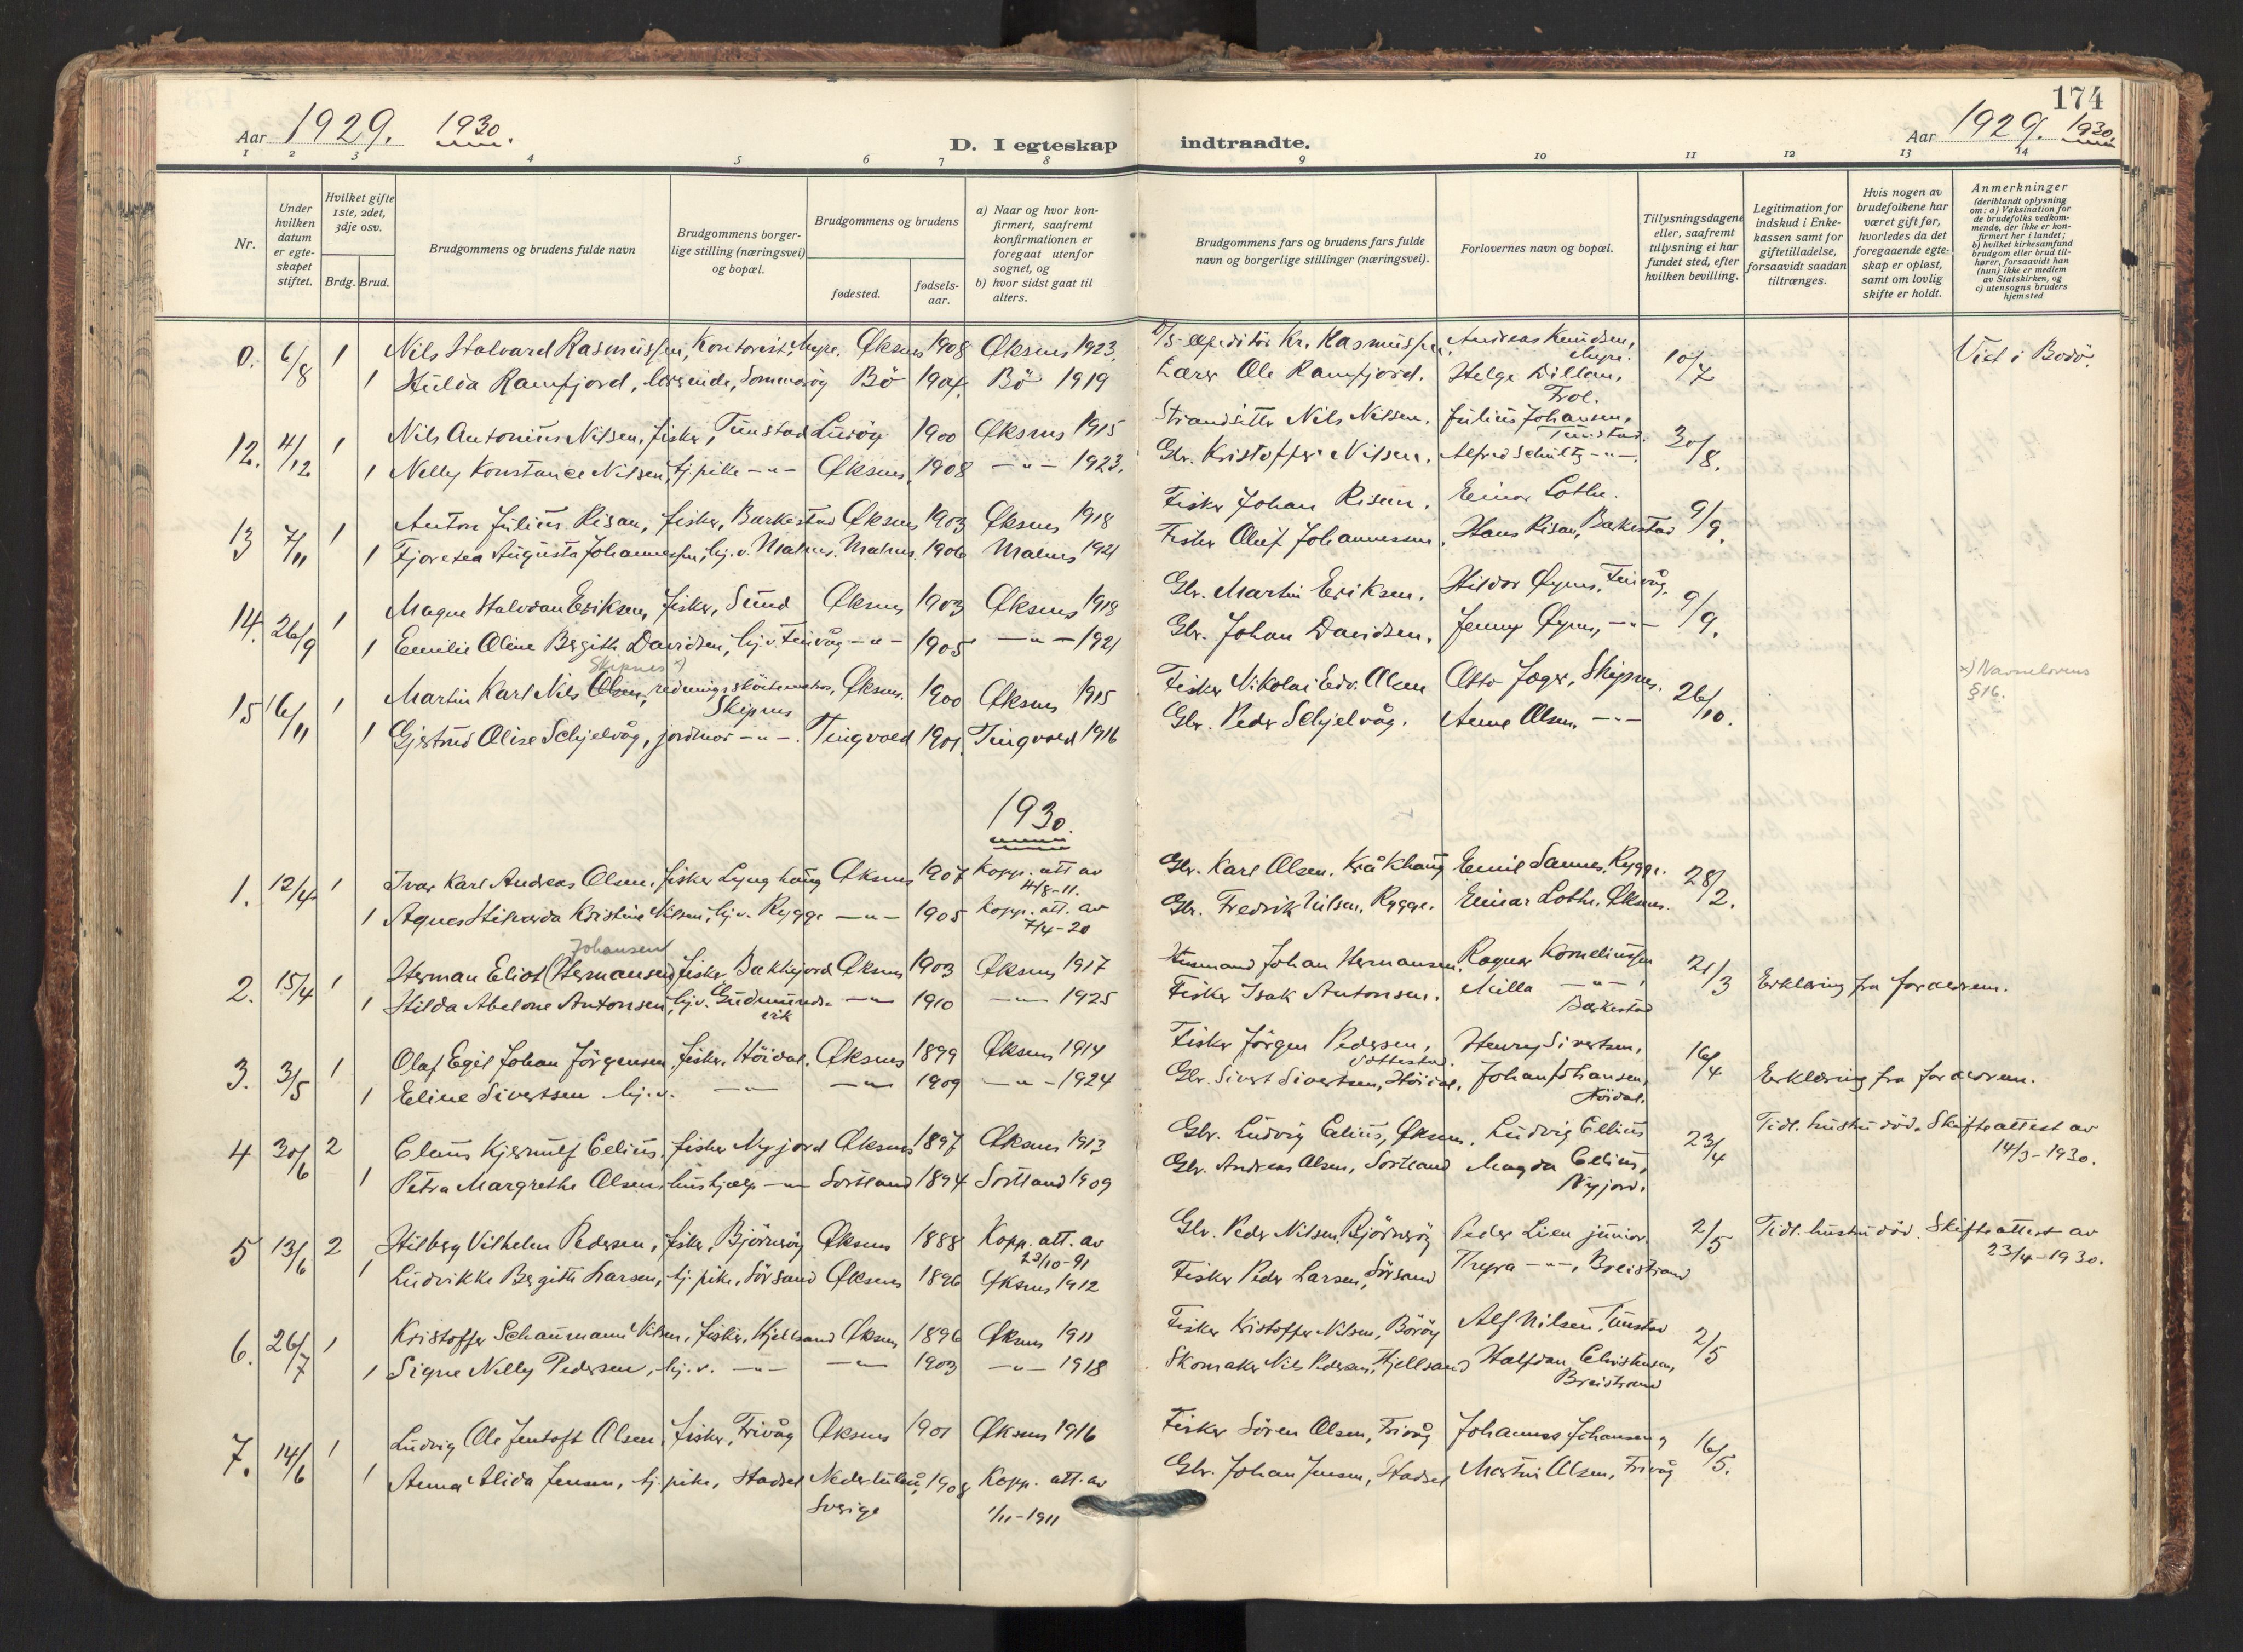 174
Aar 1929. 1930.
D. I egteskap indtraadte.
Aar 1929. 1930.
1 2 3 4 5 6 7 8 9 10 11 12 13 14
Nr.
Under hvilken datum er egte-skapet stiftet.
Hvilket gifte 1ste, 2det, 3dje osv.
Brdg. Brud.
Brudgommens og brudens fulde navn
Brudgommens borger-lige stilling (næringsvei) og bopæl.
Brudgommens og brudens
fødested.
fødsels-aar.
a) Naar og hvor kon-firmert, saafremt konfirmationen er foregaat utenfor sognet, og
b) hvor sidst gaat til alters.
Brudgommens fars og brudens fars fulde navn og borgerlige stillinger (næringsvei).
Forlovernes navn og bopæl.
Tillysningsdagene eller, saafremt tillysning ei har fundet sted, efter hvilken bevilling.
Legitimation for indskud i Enke-kassen samt for giftetilladelse, forsaavidt saadan tiltrænges.
Hvis nogen av brudefolkene har været gift før, hvorledes da det foregaaende egte-skap er opløst, samt om lovlig skifte er holdt.
Anmerkninger (deriblandt oplysning om: a) Vaksination for de brudefolks vedkom-mende, der ikke er kon-firmert her i landet; b) hvilket kirkesamfund brudgom eller brud til-hører, forsaavidt han (hun) ikke er medlem av Statskirken, og c) utensogns bruders hjemsted
0. 6/8 1 Nils Halvard Rasmussen, Kontorist, Myre. Øksnes 1908 Øksnes 1923. D/S-expeditør Kr. Rasmussen. Andreas Knudsen, Myre. 10/7 Viet i Bodö.
1 Hulda Ramfjord, lærerinde, Sommarøy Bö 1904. Bö 1919 Lærer Ole Ramfjord. Helge Dillan, Frol.
12. 4/12 1 Nils Antonius Nilsen, fisker, Tunstad Luröy 1900 Øksnes 1915 Strandsitter Nils Nilsen. Julius Johansen, Tunstad. 30/8.
1 Nelly Konstance Nilsen, tj.pike -"- Øksnes. 1908 -"- 1923. Gbr. Kristoffer Nilsen. Alfred Schultz -"-.
13 7/11 1 Anton Julius Risan, fisker, Barkestad Øksnes 1903 Øksnes 1918 Fisker Johan Risan. Einar Lothe. 9/9.
1 Augusta Johannessen, hj.v. Malnes. Malnes. 1906 Malnes 1921 Fisker Oluf Johannessen. Hans Risan, Barkestad
14. 26/9 1 Magne Halvdan Eriksen, fisker, Sund Øksnes 1903 Øksnes 1918 Gbr. Martin Eriksen. Hildor Øynes, Finvåg. 9/9.
1 Emilie Oline Bergith Davidsen, hj.v. Finvåg -"- 1905 -"- 1921 Gbr. Johan Davidsen. Jenny Øynes, -"-
Skipnes x)
15 16/11 1 Martin Karl Nils Olsen, redningsskøitematros, Skipnes Øksnes. 1900 Øksnes 1915 Fisker Nikolai Edv. Olsen Otto Jæger, Skipnes. 26/10. x) Navnelovens § 16.
1 Gjertrud Olise Schjelvåg, jordmor -"-. Tingvold 1901. Tingvold 1916 Gbr. Peder Schjelvåg. Anne Olsen -"-
1930.
1. 12/4 1 Ivar Karl Andreas Olsen, fisker Lynghaug Øksnes 1907 Kopp. att av 4/8-11. Gbr. Karl Olsen, Kråkhaug Emil Sannes, Rygge. 28/2.
1 Agnes Kristine Nilsen, hj.v. Rygge -"- 1905 Kopp. att. av 7/4-20 Gbr. Fredrik Nilsen, Rygge. Einar Lothe, Øksnes.
Johansen
2. 15/4 1 Herman Eliot (Hermansen) fisker, Bakkefjord Øksnes 1903 Øksnes 1917 Husmand Johan Hermansen. Ragnar Korneliussen 21/3 Erklæring fra foræderen.
1 Hilda Abelone Antonsen, hj.v. Gudmundsvik -"- 1910 -"- 1925 Fisker Isak Antonsen. Milla -"-, Barkestad
3. 3/5 1 Olaf Egil Johan Jörgensen, fisker, Höidal. Øksnes 1899 Øksnes 1914 Fisker Jörgen Pedersen, Henry Sivertsen, 16/4 Erklæring fra foræderen.
1 Eline Sivertsen hj.v. -"- -"- 1909 -"- 1924 Gbr. Sivert Sivertsen, Höidal. Johan Johansen, Höidal.
4 30/6 2 Claus Kjerulf Celius, fisker Nyjord Øksnes 1897 Øksnes 1913 Gbr. Ludvig Celius, Øksnes. Ludvig Cellius 23/4 Tidl. hustru död. Skifteattest av 14/3-1930.
1 Petra Margrethe Olsen, hushjælp -"- Sortland 1894 Sortland 1909 Gbr. Andreas Olsen, Sortland Magda Celius, Nyjord.
5 13/6 2 Hilberg Vilhelm Pedersen, fisker, Björnröy Øksnes 1888 Kopp. att. av 23/10-91 Gbr. Peder Nilsen, Björnröy Peder Lien junior. 2/5 Tidl. hustru död. Skifteattest av 23/4-1930.
1 Ludvikke Bergith Larsen, tj.pike, Sörsand Øksnes 1896 Øksnes 1912 Fisker Peder Larsen, Sörsand Thyra -"-, Breistrand
6. 26/7 1 Kristoffer Schaumann Nilsen, fisker, Hjellsand Øksnes 1896 Øksnes 1911 Fisker Kristoffer Nilsen, Böröy Alf Nilsen, Tunstad 2/5
1 Signe Nelly Pedersen, hj.v. -"- -"- 1903 -"- 1918 Skomaker Nils Pedersen, Hjellsand Halfdan Christensen, Breistrand
7. 14/6 1 Ludvig Ole Jentoft Olsen, fisker, Frivåg Øksnes 1901 Øksnes 1916 Fisker Sören Olsen, Frivåg Johannes Johansen 16/5.
1 Anna Alida Jensen, tj.pike, Stadset Nederluleå, Sverige 1908 Kopp. att. av 1/11-1911 Gbr. Johan Jensen, Stadset Martin Olsen, Frivåg